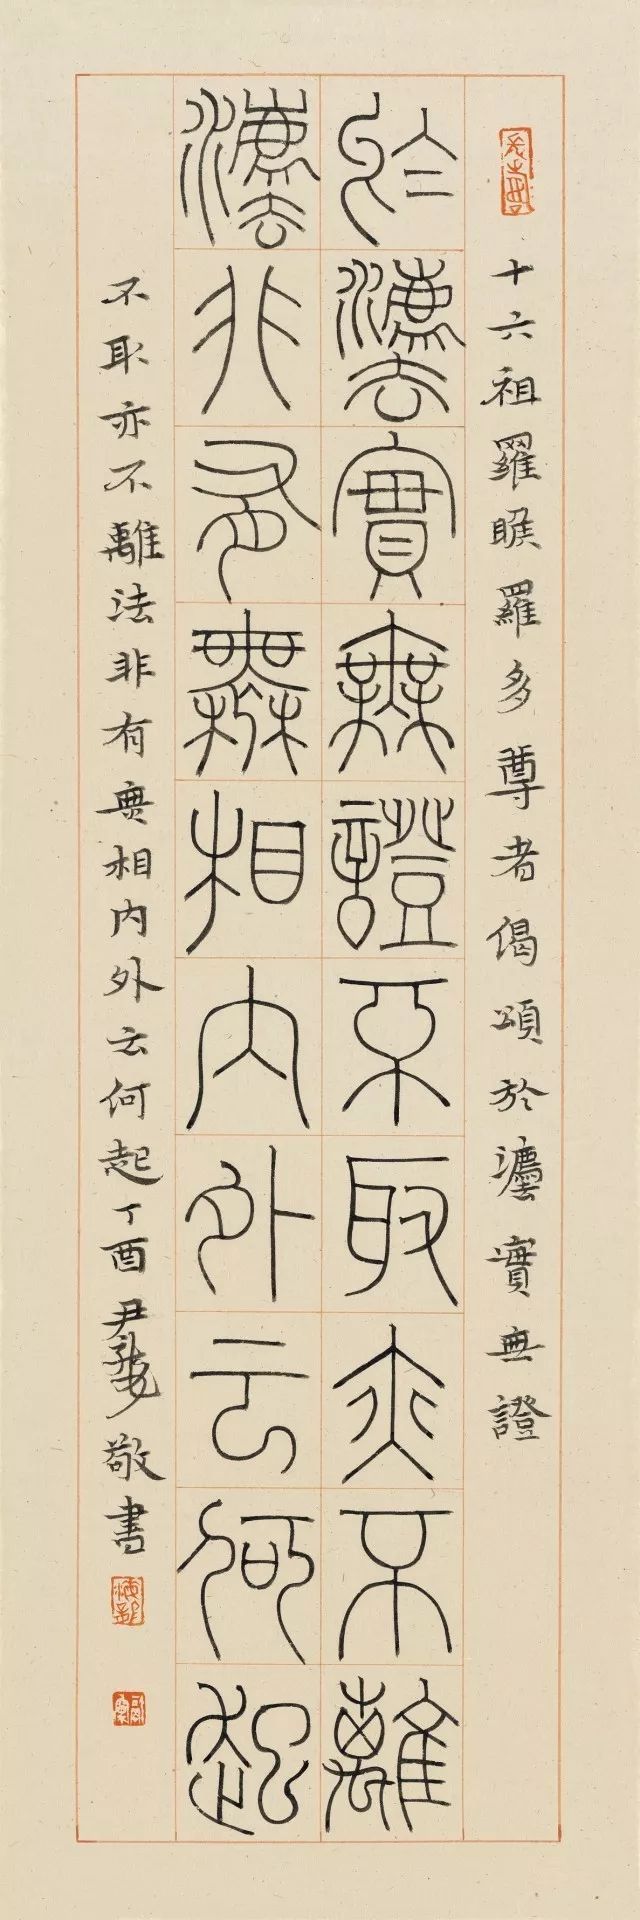 十六祖羅睺羅多尊者偈頌於灋實無證
於灋實無證不取亦不離
灋非有無相內外云何起
不取亦不離法非有無相内外云何起丁酉尹海龍敬書